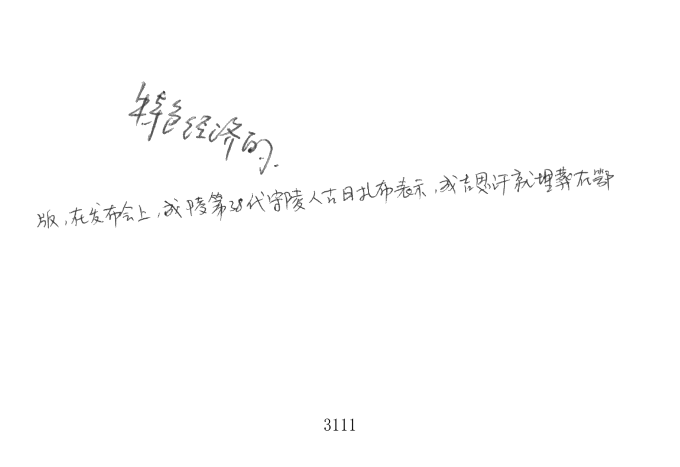 特色经济的.
版,在发布会上,成陵第38代守陵人古日扎布表示,成吉思汗就埋葬在鄂
3111